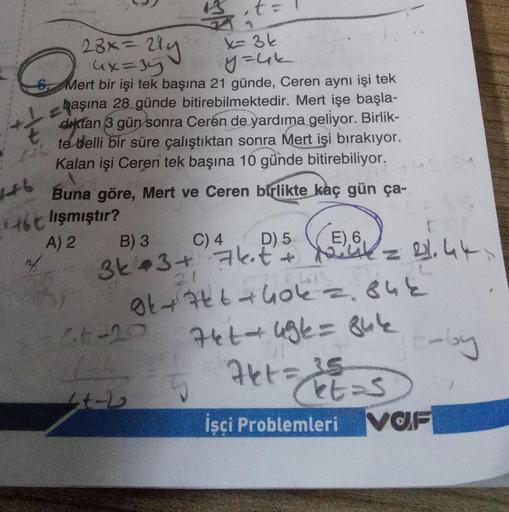 28x = 21y    x = 3k
4x = 3y    y = 4k
6. Mert bir işi tek başına 21 günde, Ceren aynı işi tek
başına 28 günde bitirebilmektedir. Mert işe başla-
dıktan 3 gün sonra Ceren de yardıma geliyor. Birlik-
te belli bir süre çalıştıktan sonra Mert işi bırakıyor.
Kalan işi Ceren tek başına 10 günde bitirebiliyor.
Buna göre, Mert ve Ceren birlikte kaç gün ça-
lışmıştır?
A) 2    B) 3    C) 4    D) 5    E) 6
9k + 7kt + 40k = 84k
7kt + 49k = 84k
7kt = 35
kt = 5
İşçi Problemleri
VAF